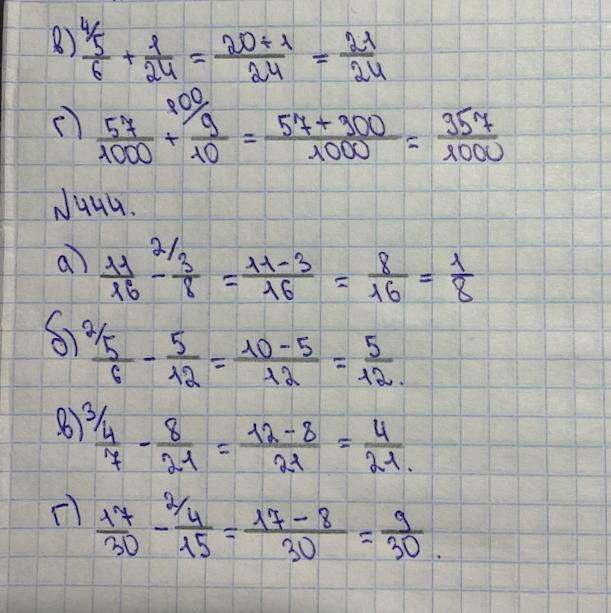 в) ⁴/5/6 + 1/24 = 20+1/24 = 21/24
г) 57/1000 + ¹⁰⁰/9/10 = 57+900/1000 = 957/1000
№444.
а) 11/16 - ²/3/8 = 11-3/16 = 8/16 = 1/8
б) ²/5/6 - 5/12 = 10-5/12 = 5/12.
в) ³/4/7 - 8/21 = 12-8/21 = 4/21.
г) 17/30 - ²/4/15 = 17-8/30 = 9/30.